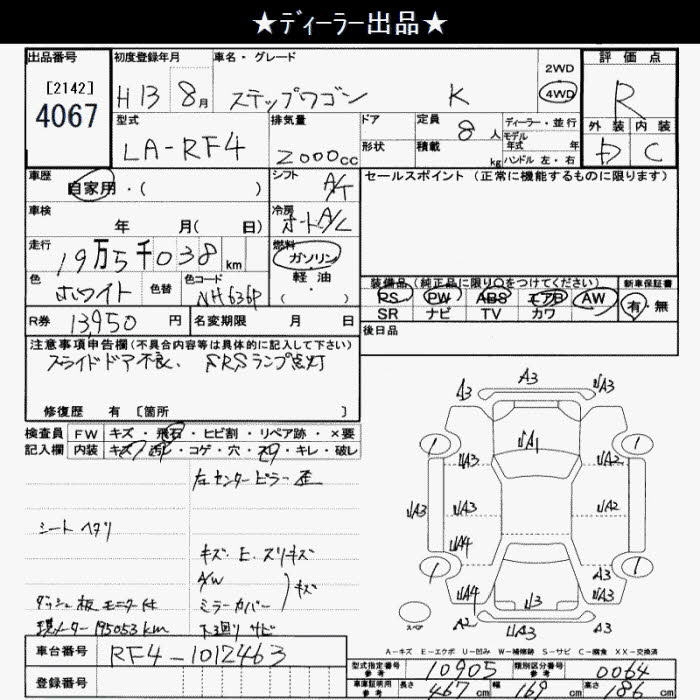 ★ディーラー出品★
出品番号 初度登録年月 車名・グレード 評価点
[2142] 4067
H13 8月 ステップワゴン K 2WD 4WD R
型式 排気量 ドア 定員 ディーラー・並行 外装 内装
LA-RF4 2000cc 8人 モデル年式 年 D C
形状 積載 kg ハンドル 左・右
車歴 自家用・( ) シフト A/T セールスポイント(正常に機能するものに限ります)
車検 年 月( 日) 冷房 オートA/C
走行 19万5千038km 燃料 ガソリン 軽・油 ( )
色 ホワイト 色替 色コード NH636P
装備品(純正品に限り○をつけてください) 新車保証書
PS PW ABS エアB AW 有・無
SR ナビ TV カワ
R券 13,950円 名変期限 月 日 後日品
注意事項申告欄(不具合内容等は具体的に記入して下さい)
スライドドア不良、SRSランプ点灯
修復歴 有 [箇所 ]
検査員 FW キズ・飛石・ヒビ割・リペア跡・×要
記入欄 内装 キズ・汚レ・コゲ・穴・スリ・キレ・破レ
左センターピラー歪
シート ヘタリ
キズ.E.スリキズ
A/W
ミラーカバー キズ
ダッシュ板 モニタ付
現メーター 195053km 下廻り サビ
A3 A3 UA3
UA1
1 1
UA3
UA3 UA3 UA2
UA4
1 1
UA4 A3
U3 A3
スペア A2 UA3
A-キズ E-エクボ U-凹み W-補修跡 S-サビ C-腐食 XX-交換済
車台番号 RF4-1012463
登録番号
型式指定番号 参考 10905 類別区分番号 参考 0064
車庫証明用 参考 長さ 467cm 幅 169cm 高さ 186cm